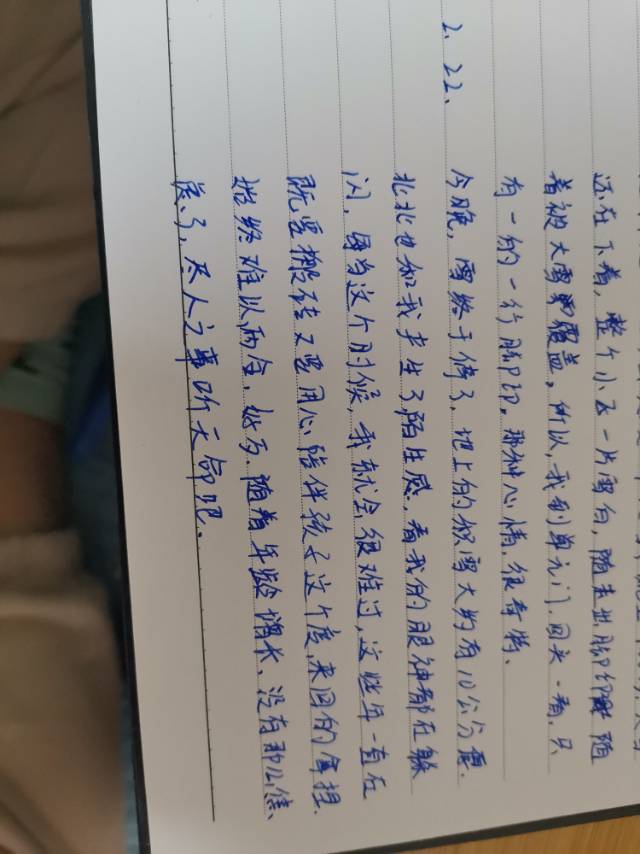 还在下着,整个小区一片雪白,随走出脚印随
着被大雪覆盖,所以,我到单元门回头一看,只
有一的一行脚印,那种心情,很奇特、
2、22、
今晚,雪终于停了,地上的积雪大约有10公分厚.
北北也和我产生了陌生感,看我的眼神都在躲
闪,每当这个时候,我就会很难过,这些年一直在
既要搬砖又要用心陪伴孩子这个度,来回的
始终难以两全,随着年龄增长、没有那么焦
虑了,尽人之事听天命吧.